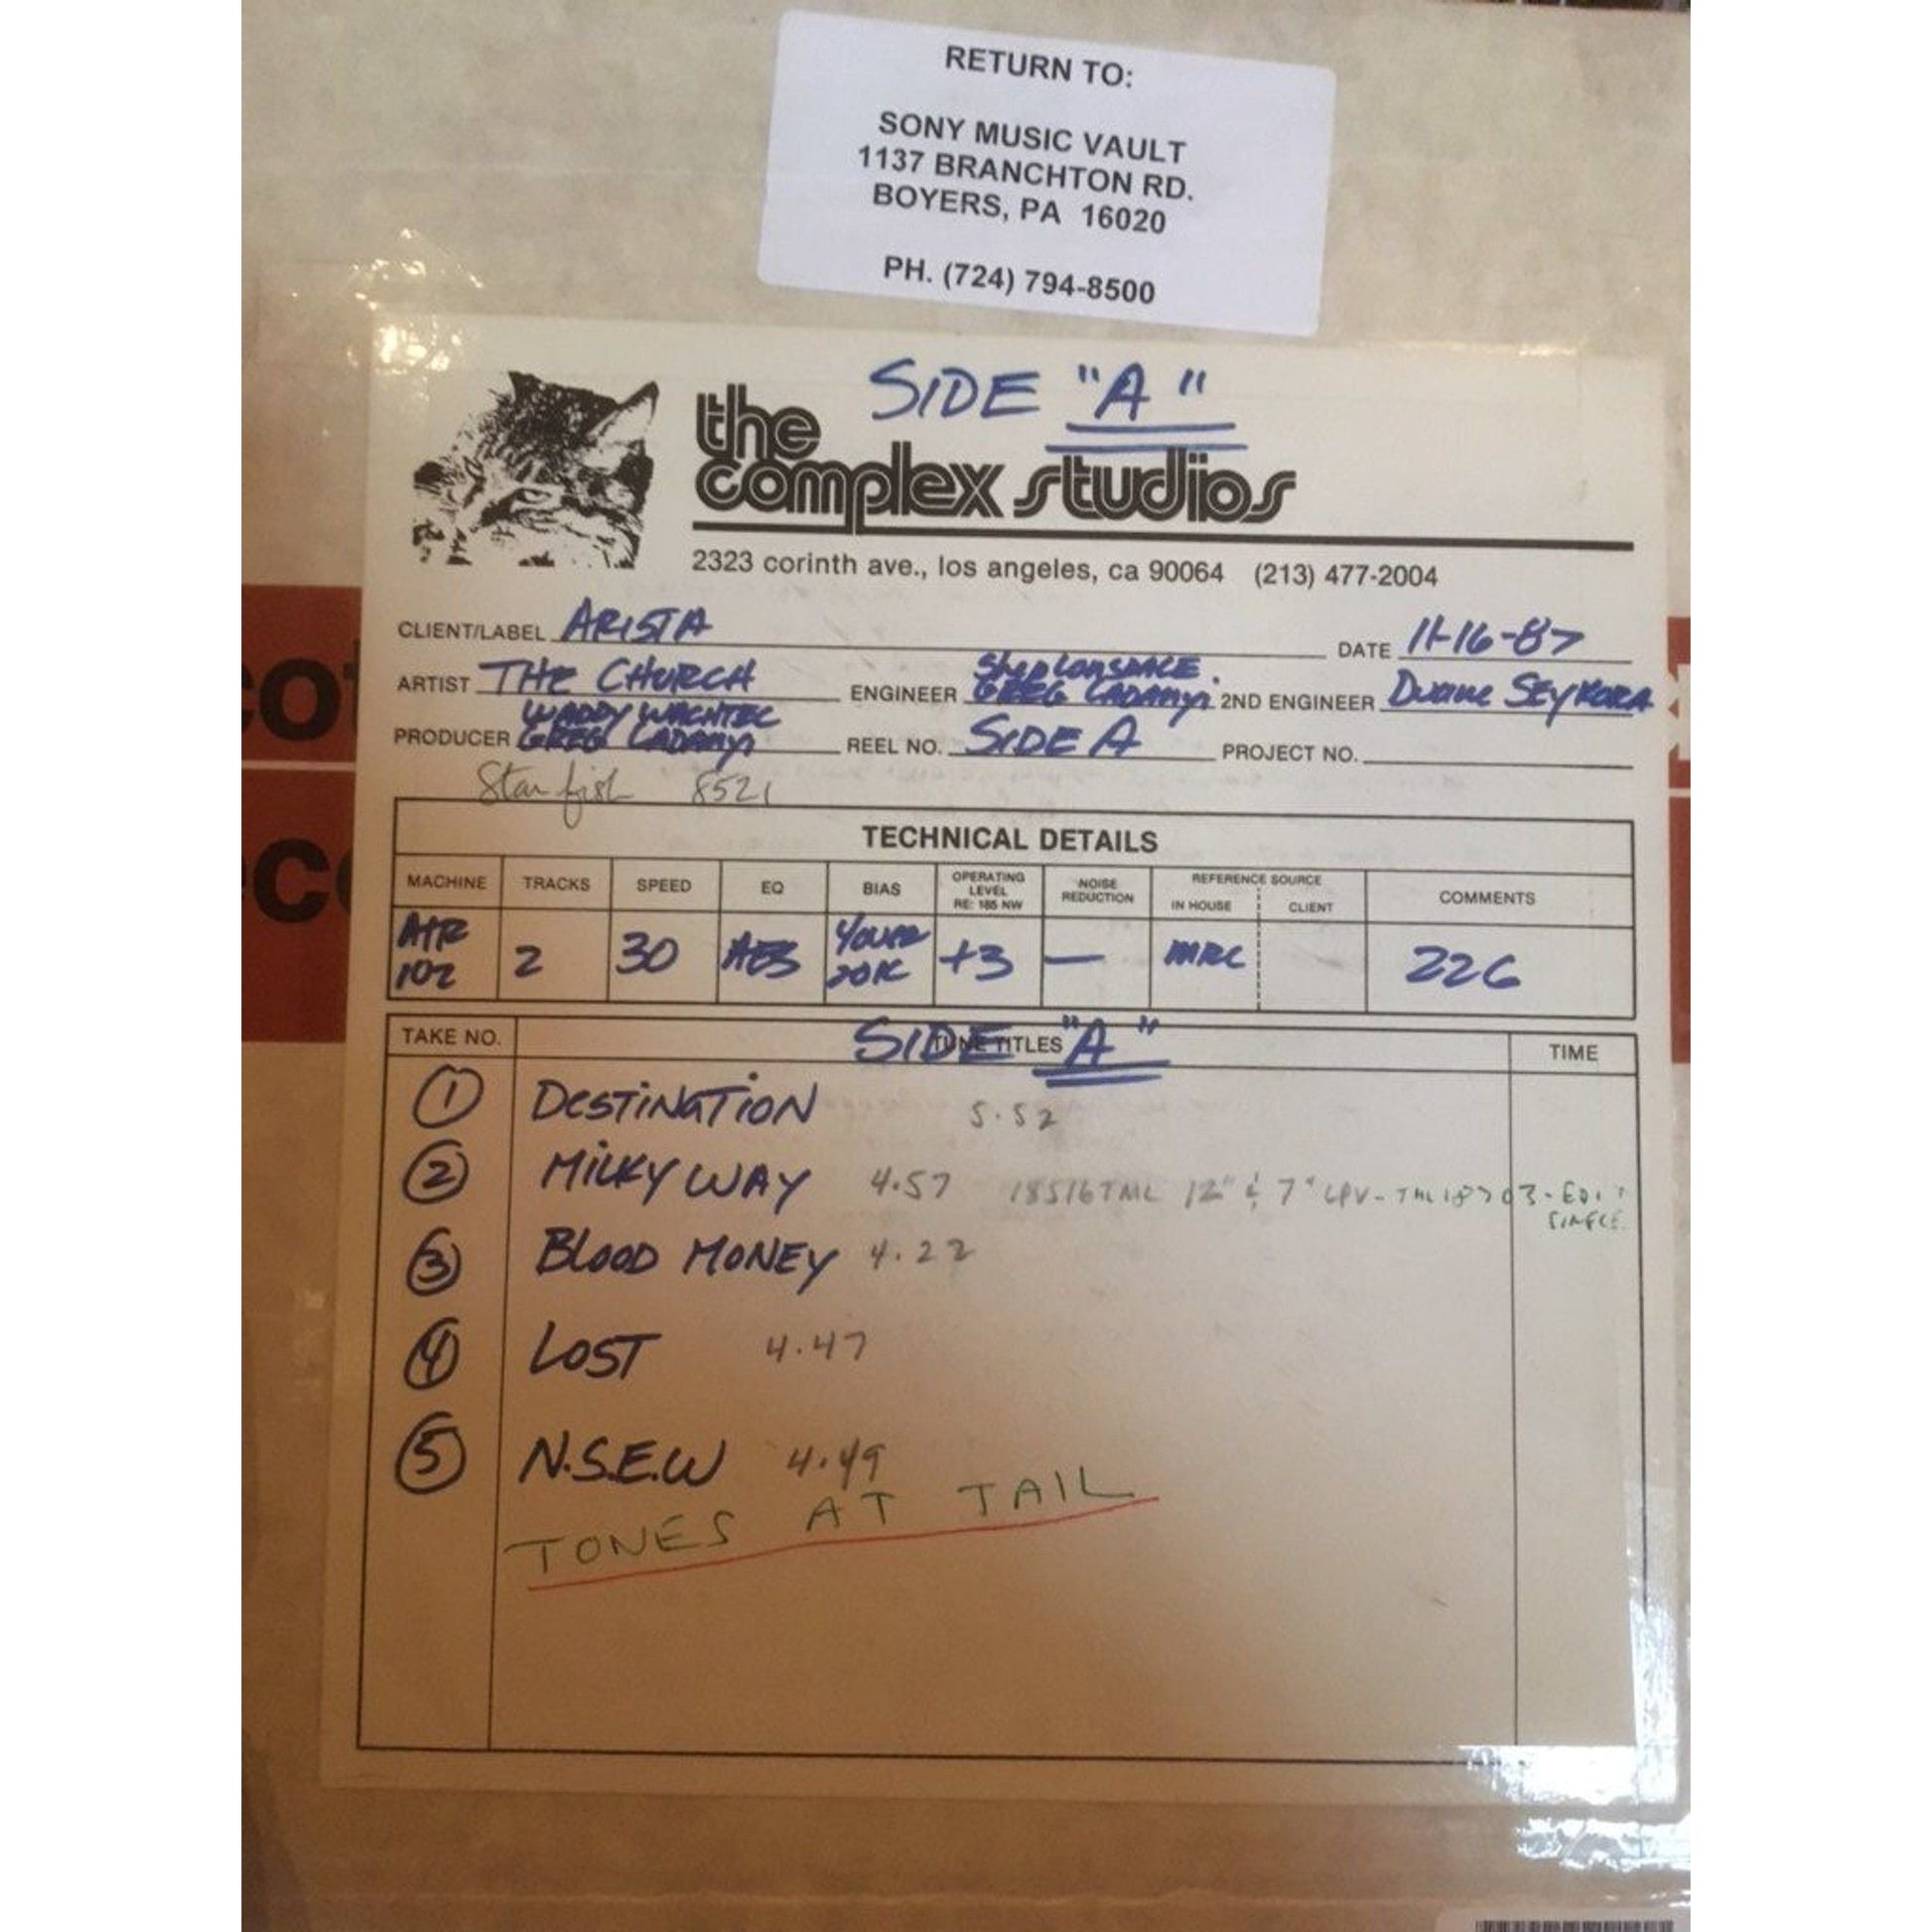 RETURN TO:
SONY MUSIC VAULT
1137 BRANCHTON RD.
BOYERS, PA 16020
PH. (724) 794-8500
SIDE "A"
the
complex studios
2323 corinth ave., los angeles, ca 90064 (213) 477-2004
CLIENT/LABEL ARISTA DATE 11-16-87
ARTIST THE CHURCH ENGINEER Shep LONSDALE. GREG LADANYI 2ND ENGINEER Duane SEYKORA
PRODUCER WADDY WACHTEL GREG LADANYI REEL NO. SIDE A PROJECT NO.
Starfish 8521
TECHNICAL DETAILS
MACHINE TRACKS SPEED EQ BIAS OPERATING LEVEL RE: 185 NW NOISE REDUCTION REFERENCE SOURCE IN HOUSE CLIENT COMMENTS
ATR 102 2 30 AES 20K +3 — MRL 226
TAKE NO. TUNE TITLES TIME
SIDE "A"
1 DESTINATION 5.52
2 MILKY WAY 4.57 18516TML 12" & 7" - EDIT
SINGLE
3 BLOOD MONEY 4.22
4 LOST 4.47
5 N.S.E.W 4.49
TONES AT TAIL